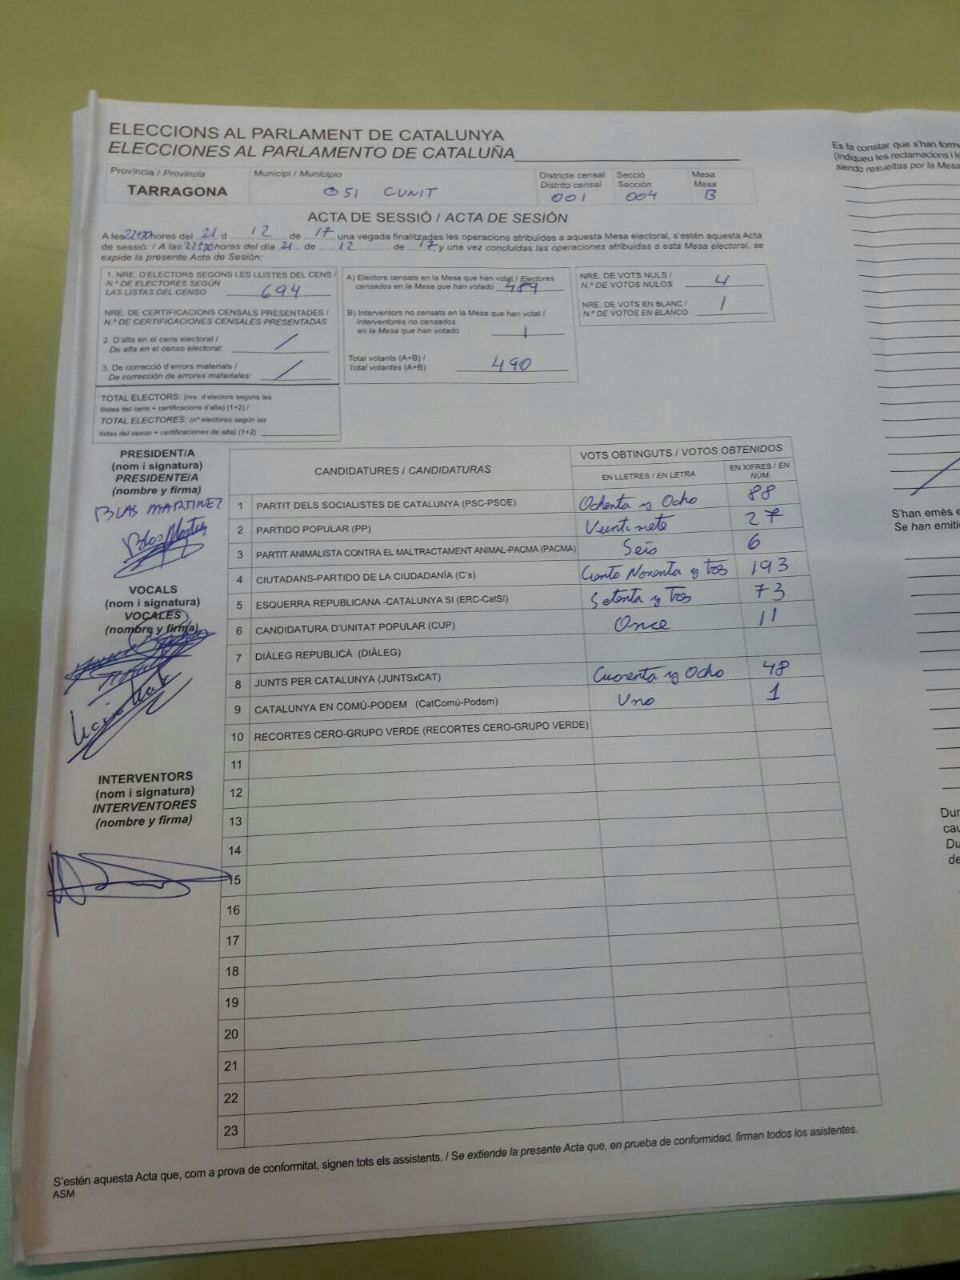 ELECCIONS AL PARLAMENT DE CATALUNYA
ELECCIONES AL PARLAMENTO DE CATALUÑA
Provincia / Provincia
TARRAGONA
Municipi / Municipio
051 CUNIT
Districte censal
Distrito censal
001
Secció
Sección
004
Mesa
Mesa
B
ACTA DE SESSIÓ / ACTA DE SESIÓN
A les 22:30 hores del 21 d 12 de 17, una vegada finalitzades les operacions atribuïdes a aquesta Mesa electoral, s'estén aquesta Acta
de sessió: / A las 22:30 horas del día 21 de 12 de 17 y una vez concluidas las operaciones atribuidas a esta Mesa electoral, se
expide la presente Acta de Sesión:
1. NRE. D'ELECTORS SEGONS LES LLISTES DEL CENS /
N.º DE ELECTORES SEGÚN
LAS LISTAS DEL CENSO 694
NRE. DE CERTIFICACIONS CENSALS PRESENTADES /
N.º DE CERTIFICACIONES CENSALES PRESENTADAS
2. D'alta en el cens electoral /
De alta en el censo electoral: /
3. De correcció d'errors materials /
De corrección de errores materiales: /
TOTAL ELECTORS: (nre. d'electors segons les
llistes del cens + certificacions d'alta) (1+2) /
TOTAL ELECTORES: (nº electores según las
listas del censo + certificaciones de alta) (1+2)
A) Electors censats en la Mesa que han votat / Electores
censados en la Mesa que han votado 489
B) Interventors no censats en la Mesa que han votat /
Interventores no censados
en la Mesa que han votado 1
Total votants (A+B) /
Total votantes (A+B) 490
NRE. DE VOTS NULS /
N.º DE VOTOS NULOS 4
NRE. DE VOTS EN BLANC /
N.º DE VOTOS EN BLANCO 1
PRESIDENT/A
(nom i signatura)
PRESIDENTE/A
(nombre y firma)
BLAS MARTINEZ
VOCALS
(nom i signatura)
VOCALES
(nombre y firma)
INTERVENTORS
(nom i signatura)
INTERVENTORES
(nombre y firma)
CANDIDATURES / CANDIDATURAS
VOTS OBTINGUTS / VOTOS OBTENIDOS
EN LLETRES / EN LETRA
EN XIFRES / EN NÚM.
1 PARTIT DELS SOCIALISTES DE CATALUNYA (PSC-PSOE) Ochenta y Ocho 88
2 PARTIDO POPULAR (PP) Veintisiete 27
3 PARTIT ANIMALISTA CONTRA EL MALTRACTAMENT ANIMAL-PACMA (PACMA) Seis 6
4 CIUTADANS-PARTIDO DE LA CIUDADANÍA (C's) Ciento Noventa y tres 193
5 ESQUERRA REPUBLICANA -CATALUNYA SI (ERC-CatSí) Setenta y tres 73
6 CANDIDATURA D'UNITAT POPULAR (CUP) Once 11
7 DIÀLEG REPUBLICÀ (DIÀLEG)
8 JUNTS PER CATALUNYA (JUNTSxCAT) Cuarenta y Ocho 48
9 CATALUNYA EN COMÚ-PODEM (CatComú-Podem) Uno 1
10 RECORTES CERO-GRUPO VERDE (RECORTES CERO-GRUPO VERDE)
11
12
13
14
15
16
17
18
19
20
21
22
23
S'estén aquesta Acta que, com a prova de conformitat, signen tots els assistents. / Se extiende la presente Acta que, en prueba de conformidad, firman todos los asistentes.
ASM
Es fa constar que s'han form
(indiqueu les reclamacions i le
siendo resueltas por la Mesa
S'han emès e
Se han emiti
Dur
cau
Du
de